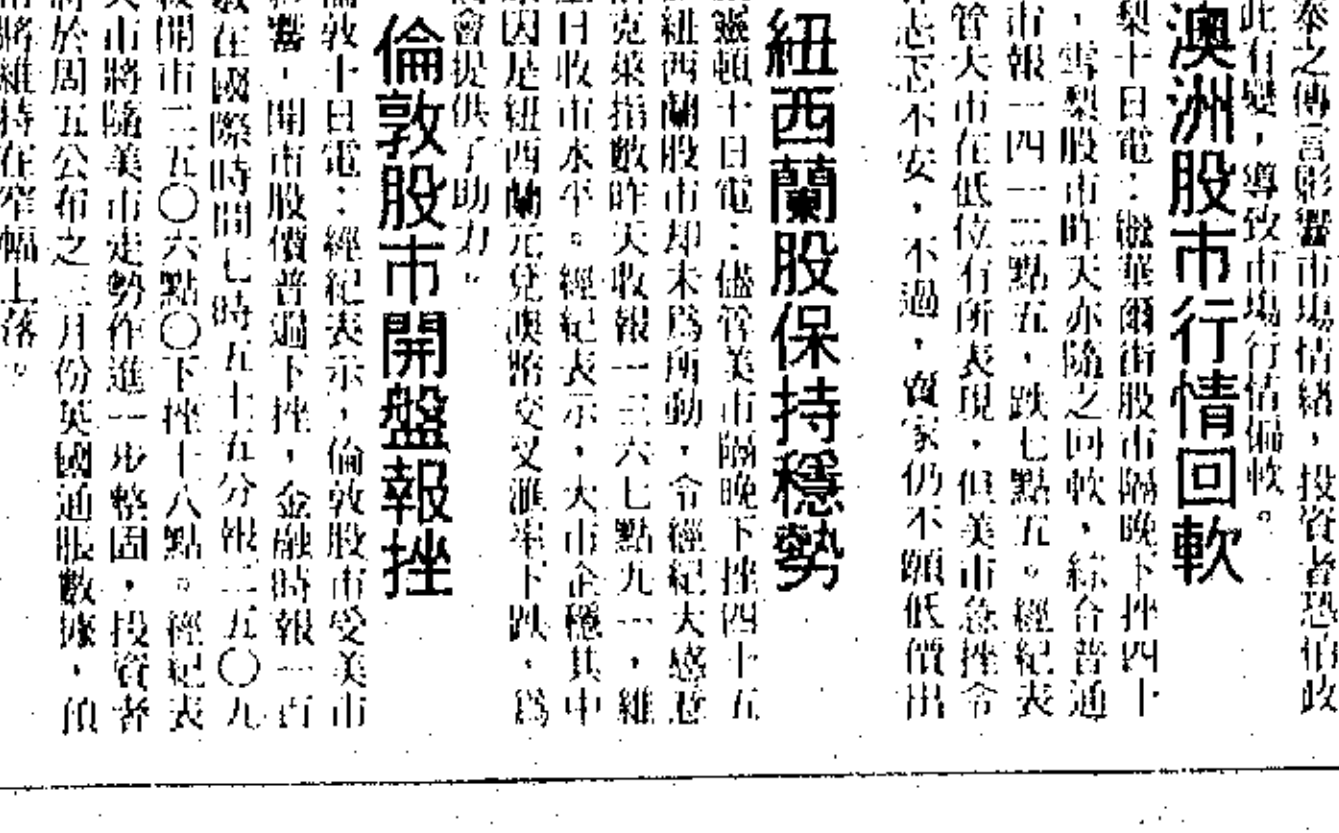 泰之傳言影響市場情緒，投資者恐怕政
此有變，導致市場行情偏軟。
澳洲股市行情回軟
梨十日電：儘華爾街股市隔晚下挫四十
，雪梨股市昨天亦隨之回軟，綜合普通
市報一四一三點五，跌七點五。經紀表
管大市在低位有所表現，但美市急挫令
忐忑不安，不過，賣家仍不願低價出
紐西蘭股保持穩勢
靈頓十日電：儘管美市隔晚下挫四十五
紐西蘭股市却未爲所動，令經紀大感
克萊指數昨天收報一三六七點九一，維
日收市水平。經紀表示，大市企穩其中
因是紐西蘭元兌澳幣交叉滙率下跌，爲
會提供了助力。
倫敦股市開盤報挫
敦十日電：經紀表示，倫敦股市受美市
響，開市股價普遍下挫，金融時報一百
在國際時間七時五十五分報二五〇九
開市二五〇六點〇下挫十八點。經紀表
市將隨美市走勢作進一步整固，投資者
於周五公布之三月份英國通脹數據，預
將維持在窄幅上落。